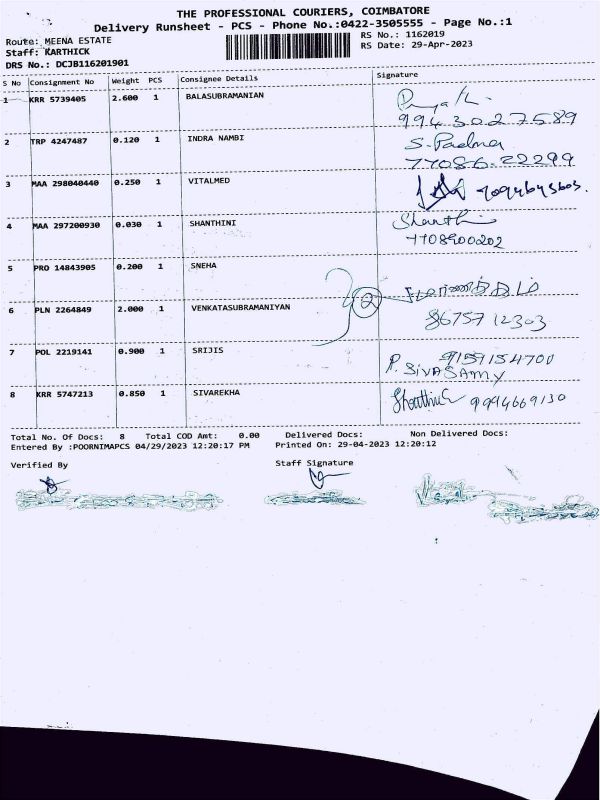 THE PROFESSIONAL COURIERS, COIMBATORE
Delivery Runsheet - PCS - Phone No.:0422-3505555 - Page No.:1
Route: MEENA ESTATE
RS No.: 1162019
Staff: KARTHICK
RS Date: 29-Apr-2023
DRS No.: DCJB116201901
S No Consignment No Weight PCS Consignee Details Signature
1 KRR 5739405 2.600 1 BALASUBRAMANIAN
9943027589
2 TRP 4247487 0.120 1 INDRA NAMBI S. Padma
77086 22299
3 MAA 298040440 0.250 1 VITALMED
4 MAA 297200930 0.030 1 SHANTHINI Shanthi
7708900202
5 PRO 14843905 0.200 1 SNEHA
6 PLN 2264849 2.000 1 VENKATASUBRAMANIYAN 2
86757 12303
7 POL 2219141 0.900 1 SRIJIS 9159154700
P. SIVASAMY
8 KRR 5747213 0.850 1 SIVAREKHA 9994669130
Total No. Of Docs: 8 Total COD Amt: 0.00 Delivered Docs: Non Delivered Docs:
Entered By :POORNIMAPCS 04/29/2023 12:20:17 PM Printed On: 29-04-2023 12:20:12
Verified By Staff Signature